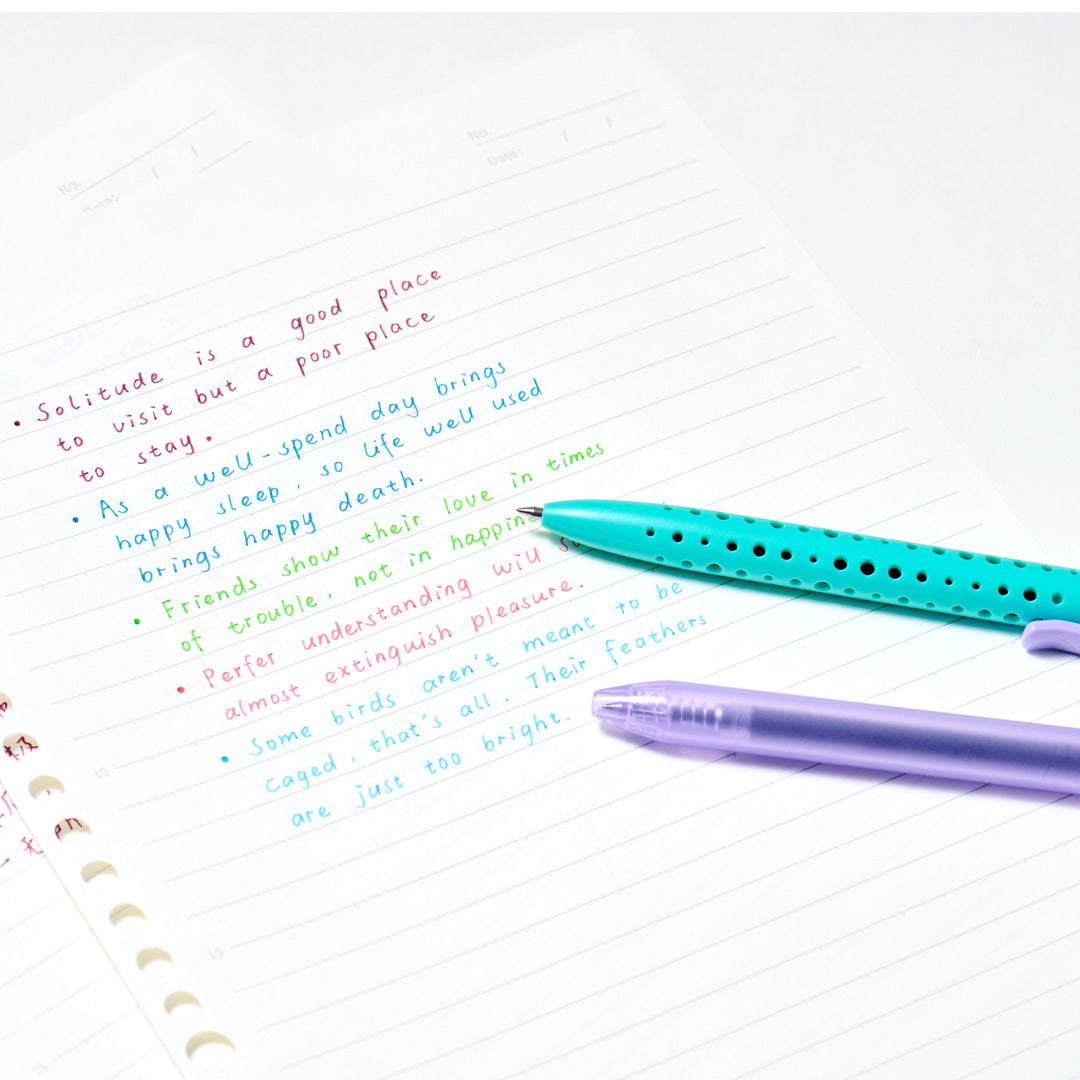 No.
Date: / /
No.
Date: / /
• Solitude is a good place
to visit but a poor place
to stay.
• As a well-spend day brings
happy sleep, so life well used
brings happy death.
• Friends show their love in times
of trouble, not in happin
• Perfer understanding will
almost extinguish pleasure.
• Some birds aren't meant to be
caged, that's all. Their feathers
are just too bright.
10
15
15